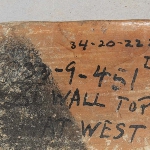 34-20-22
-9-451
WALL TOP
AT WEST